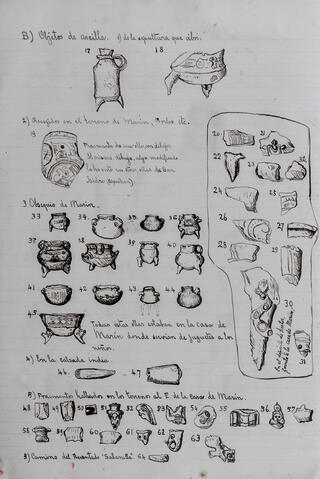 B) Objetos de arcilla. 1) de la sepultura que abrí.
17 18
2) Recogidos en el terreno de Marín, Montes etc.
19
Fragmento de olla con dibujo
El mismo dibujo, algo modificado
lo he visto en otras ollas de San
Isidro
20 21
22 23 32
24 25
26 27
28 29
30
31
3) Obsequio de Marín.
33 34 35 36
37 38 39 40
41 42 43 44
45
Todas estas ollas estaban en la casa de
Marín donde servían de juguetes a los
niños.
4) En la calzada india.
46 47
5) Fragmentos hallados en los terrenos al E. de la Casa de Marín.
48 49 50 51 52 53 54 55 56 57
58 59 60 61 62 63
3) Camino del "Sabanilla" 64